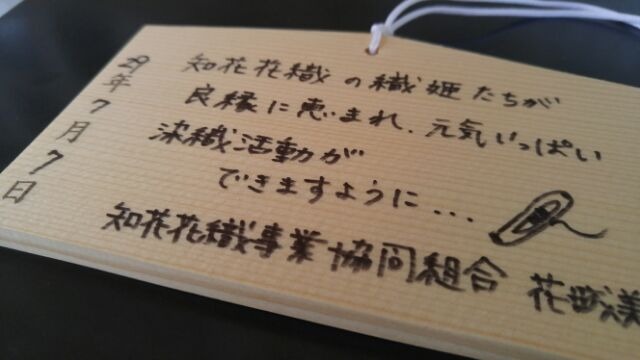 知花花織の織姫たちが
良縁に恵まれ、元気いっぱい
染織活動が
できますように...
知花花織事業協同組合 花
29年7月7日